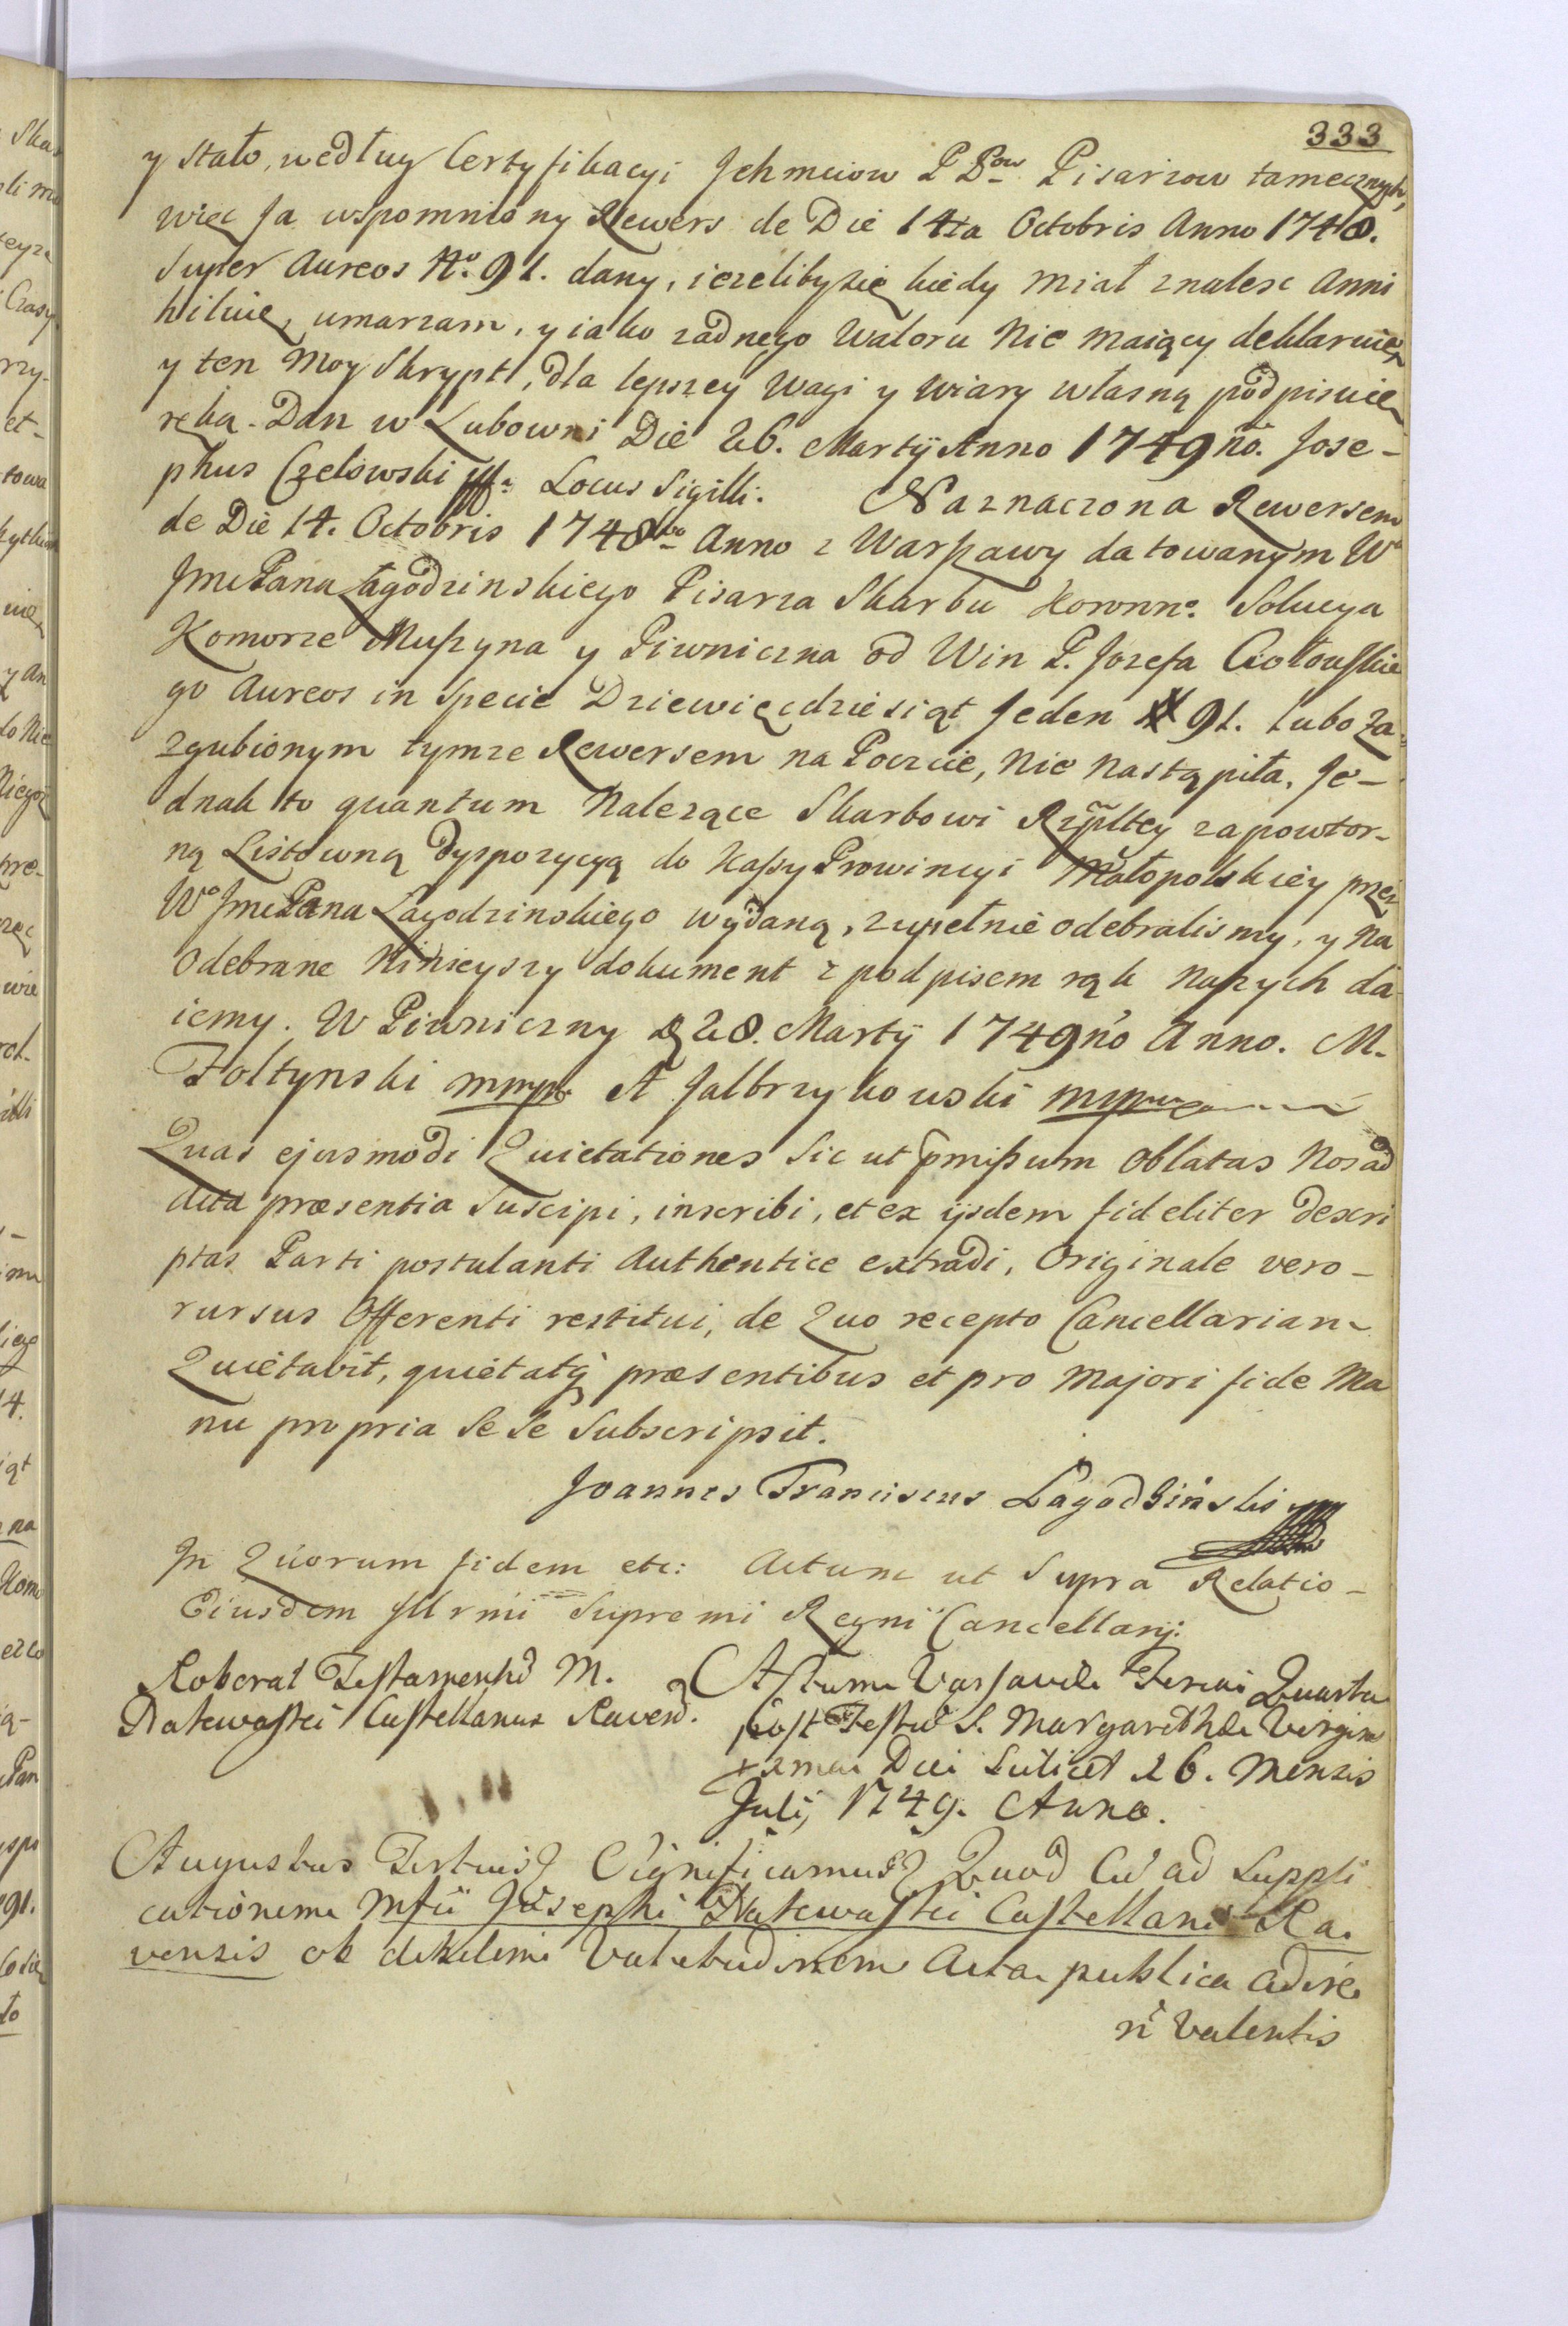 333
y stało, według Certyfikacyi Jchmciow P Pow Pisarzow tamecznych,
więc Ja wspomniony Rewers de Die 14ta Octobris Anno 1748.
Super Aureos No. 91. dany, iezeliby się kiedy miał znalesc Anni
hiluię, umarzam, y iako zadnego Waloru Nie maiący deklaruię
y ten Moy Skrypt, dla lepszey Wagi y Wiary własną podpisuię
ręką. Dan w Lubowni Die 26. Martij Anno 1749no. Jose-
phus Czelowski Locus Sigilli. Naznaczona Rewersem
de Die 14. Octobris 1748vo Anno z Warszawy datowanym Wo
Jmć Pana Łagodzinskiego Pisarza Skarbu Koronno. Solucya
Komorze Muszyna y Piwniczna od Win P. Jozefa
go Aureos in Specie Dziewięcdziesiąt Jeden 91. lubo za
zgubionym tymze Rewersem na Poczcie, Nie Nastąpiła. Je-
dnak to quantum Nalezące Skarbowi Rzpltey zapowtor-
ną Listowną dyspozycyą do Kassy Prowincyi Małopolskiey przez
Wo Jmć Pana Łagodzinskiego wydaną, zupełnie odebralismy, y Na
Odebrane Ninieyszy dokument z podpisem rąk Naszych da
iemy. W Piwniczny D 28. Martij 1749no Anno. M.
Zoltynski mmp. A Jalbrzykowski mmp
Quas ejusmodi Quietationes Sic ut pmissum Oblatas Nos ad
Acta præsentia Suscipi, inscribi, et ex ijsdem fideliter descri
ptas Parti postulanti Authentice extradi, Originale vero-
rursus Offerenti restitui, de Quo recepto Cancellariam
Quietavit, quietatq præsentibus et pro Majori fide Ma
nu propria Se Se Subscripsit.
Joannes Franciscus Łagodzinski
In Quorum fidem etc: Actum ut Supra Relatio-
Eiusdem Jllrmi Supremi Regni Cancellarij:
Roborat Testamentũ M.
Nakwaski Castellanus Ravens.
Actum Varsaviæ Feria Quarta
post Festũ S. Margarethæ Virgin
xima Die Scilicet 26. Mensis
Julij 1749. Anno.
Augustus Tertius Significamus Quod Cũ ad Suppli
cationem Mfci Josephi Nakwaski Castellani Ra.
vensis ob debilem Valetudinem Acta publica adire
ñ Valentis